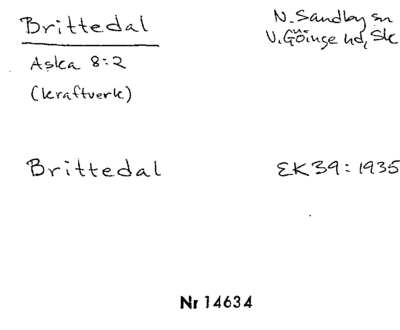 Brittedal
N. Sandby sn
V. Göinge hd, Sk
Aska 8:2
(kraftverk)
Brittedal
EK39:1935
Nr 14634